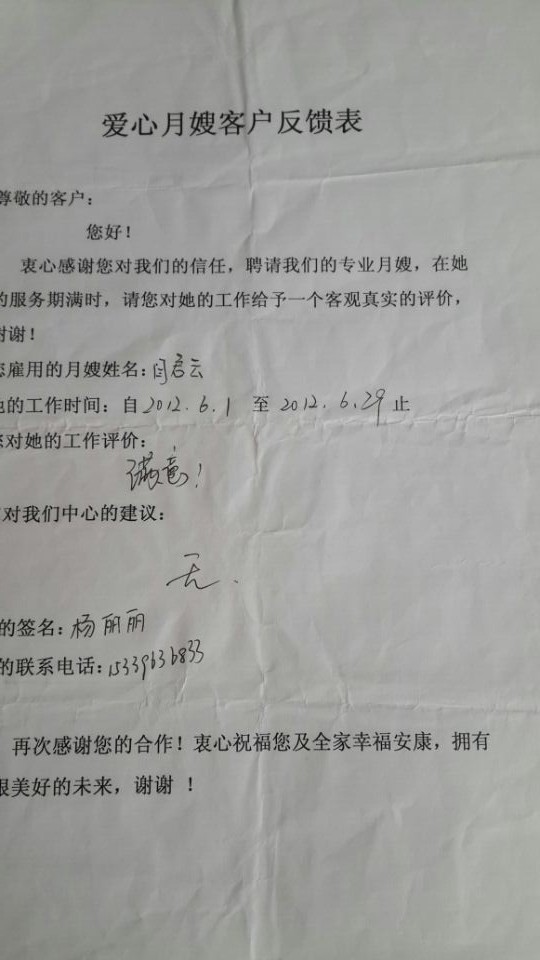 爱心月嫂客户反馈表
尊敬的客户：
您好！
衷心感谢您对我们的信任，聘请我们的专业月嫂，在她
的服务期满时，请您对她的工作给予一个客观真实的评价，
谢谢！
您雇用的月嫂姓名：闫君云
她的工作时间：自2012.6.1 至 2012.6.29 止
您对她的工作评价：
满意！
对我们中心的建议：
无.
的签名：杨丽丽
的联系电话：15339636833
再次感谢您的合作！衷心祝福您及全家幸福安康，拥有
很美好的未来，谢谢 ！